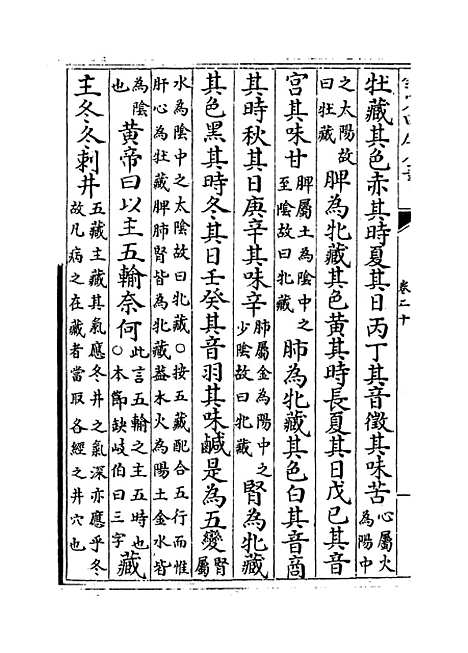 牡藏其色赤其時夏其日丙丁其音徵其味苦心屬火為陽中
之太陽故曰牡藏脾為牝藏其色黄其時長夏其日戊己其音
宫其味甘脾屬土為陰中之至陰故曰牝藏肺為牝藏其色白其音商
其時秋其日庚辛其味辛肺屬金為陽中之少陰故曰牝藏腎為牝藏
其色黑其時冬其日壬癸其音羽其味鹹是為五變腎屬
水為陰中之太陰故曰牝藏○按五藏配合五行而惟
肝心為牡藏脾肺腎皆為牝藏葢木火為陽土金水皆
為陰也黄帝曰以主五輸奈何此言五輸之主五時也○本節缺岐伯曰三字藏
主冬冬刺井五藏主藏其氣應冬井之氣深亦應乎冬故凡病之在藏者當取各經之井穴也
卷二十